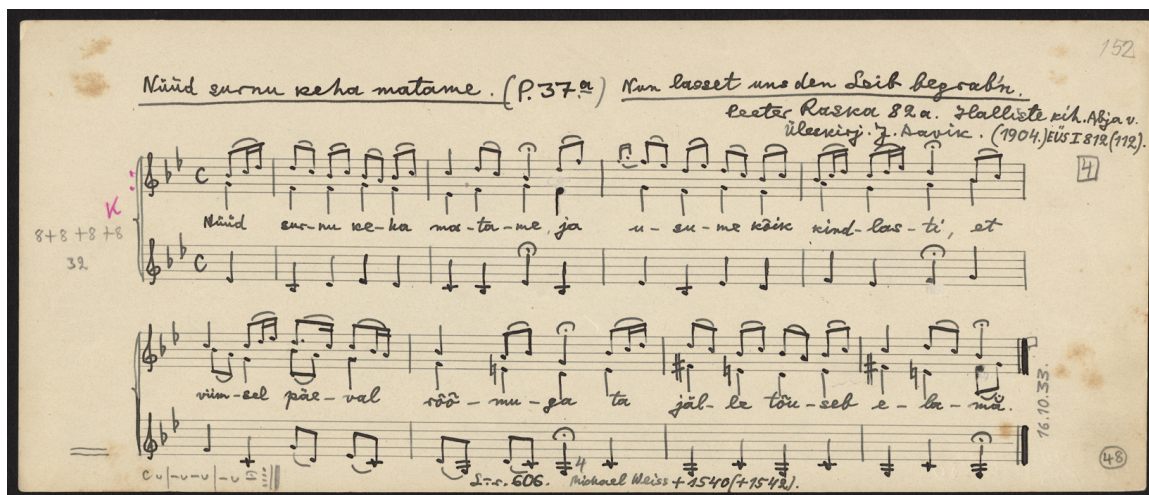 152
Nüüd surnu keha matame. (P. 37.a) Nun lasset uns den Leib begrab'n.
Peeter Raska 82 a. Halliste kih. Abja v.
Üleskirj. J. Aavik. (1904.) EÜS I 812 (112).
4
K
8+8+8+8
32
Nüüd sur-nu ke-ha ma-ta-me, ja u-su-me kõik kind-las-ti, et
viim-sel päe-val rõõ-mu-ga ta jäl-le tõu-seb e-la-ma.
16.10.33.
48
606. Michael Weiss + 1540 (+1542).